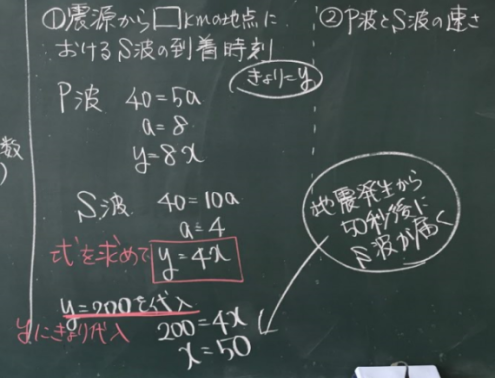 ①震源から□kmの地点に
おけるS波の到着時刻
きょり=y
P波 40=5a
a=8
y=8x
S波 40=10a
a=4
式を求めて y=4x
y=200を代入
yにきょり代入
200=4x
x=50
地震発生から
50秒後に
S波が届く
②P波とS波の速さ
数
)